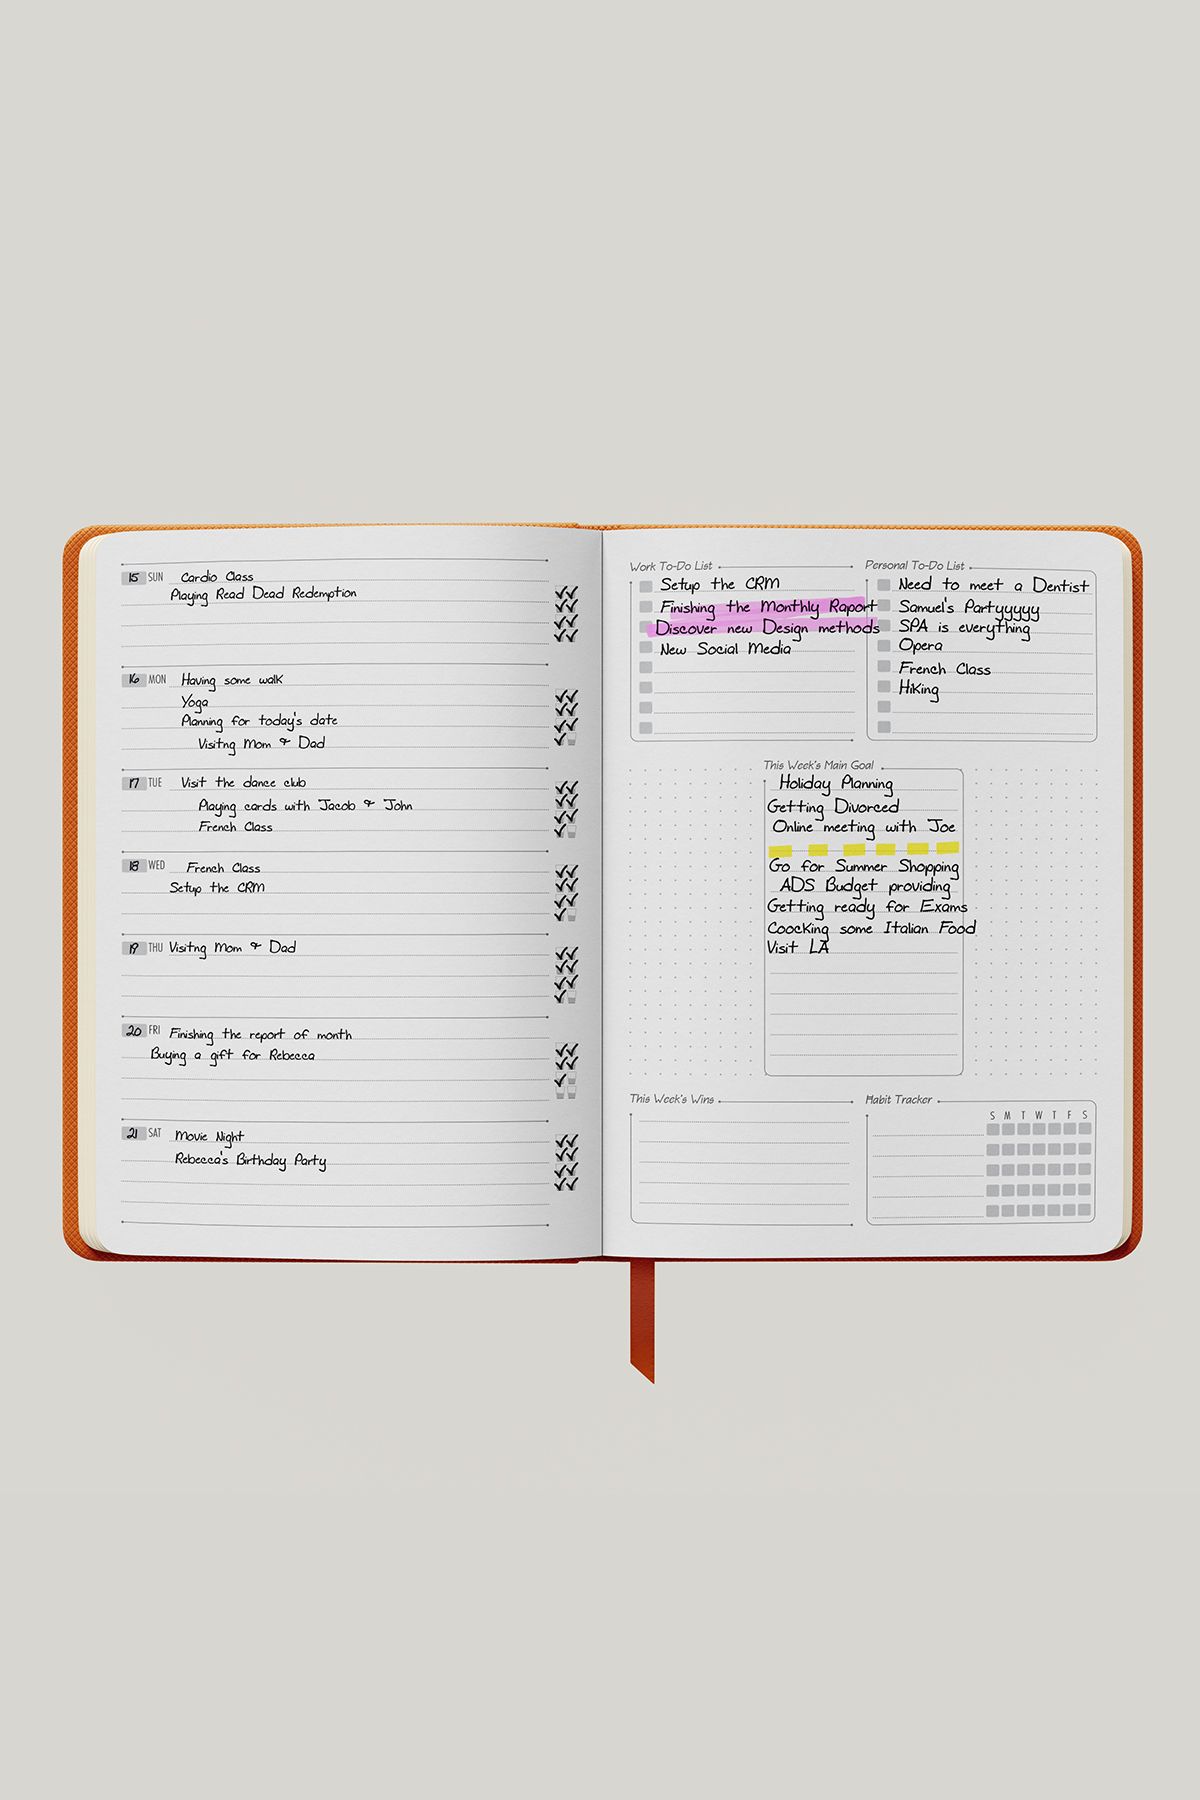 15 SUN Cardio Class
Playing Read Dead Redemption
16 MON Having some walk
Yoga
Planning for today's date
Visitng Mom & Dad
17 TUE Visit the dance club
Playing cards with Jacob & John
French Class
18 WED French Class
Setup the CRM
19 THU Visitng Mom & Dad
20 FRI Finishing the report of month
Buying a gift for Rebecca
21 SAT Movie Night
Rebecca's Birthday Party
Work To-Do List
Setup the CRM
Finishing the Monthly Raport
Discover new Design methods
New Social Media
Personal To-Do List
Need to meet a Dentist
Samuel's Partyyyyy
SPA is everything
Opera
French Class
Hiking
This Week's Main Goal
Holiday Planning
Getting Divorced
Online meeting with Joe
Go for Summer Shopping
ADS Budget providing
Getting ready for Exams
Coocking some Italian Food
Visit LA
This Week's Wins
Habit Tracker
S M T W T F S